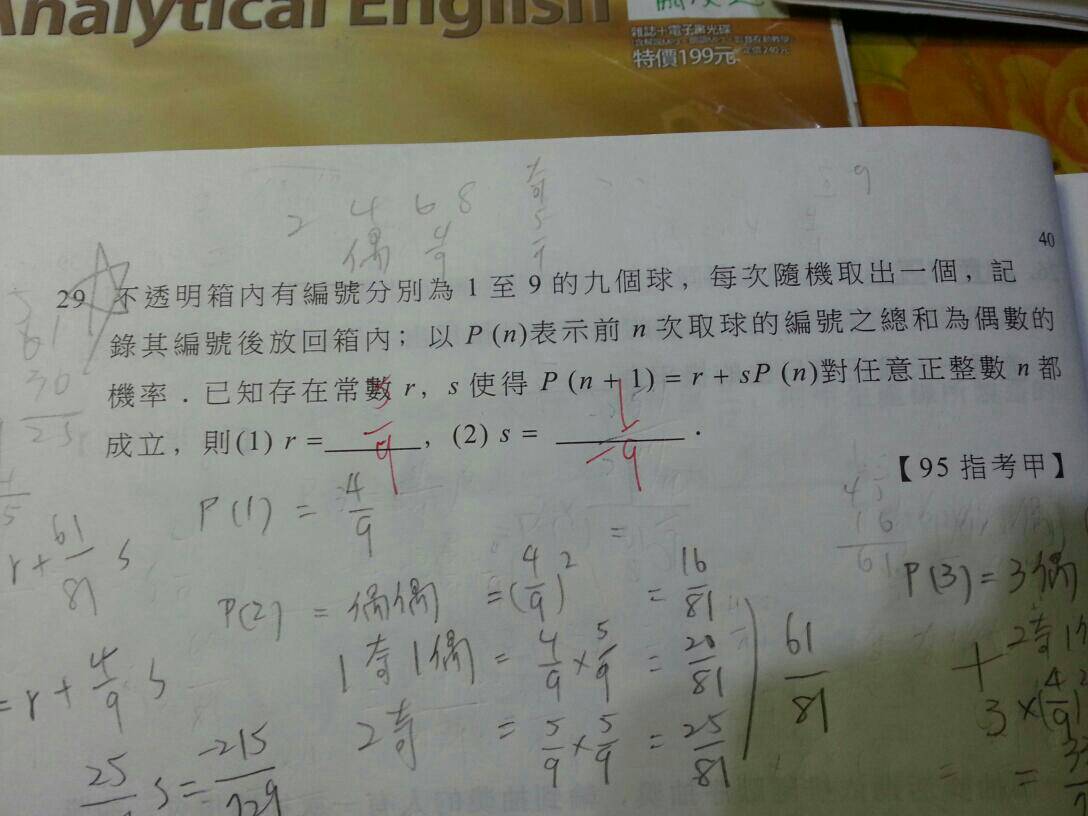 Analytical English
雜誌+電子書光碟
特價199元
2 4 6 8
偶 4/9
奇 5/9
9
40
29. 不透明箱內有編號分別為 1 至 9 的九個球，每次隨機取出一個，記
錄其編號後放回箱內；以 P (n)表示前 n 次取球的編號之總和為偶數的
機率．已知存在常數 r，s 使得 P (n + 1) = r + sP (n)對任意正整數 n 都
成立，則(1) r = 5/9，(2) s = 1/-9．
【95 指考甲】
P(1) = 4/9
r + 61/81 s
P(2) = 偶偶 = (4/9)² = 16/81
1奇1偶 = 4/9 × 5/9 = 20/81
2奇 = 5/9 × 5/9 = 25/81
61/81
= r + 4/9 s
s = -215/729
P(3) = 3偶
+ 2奇1
3 × (4/9)²